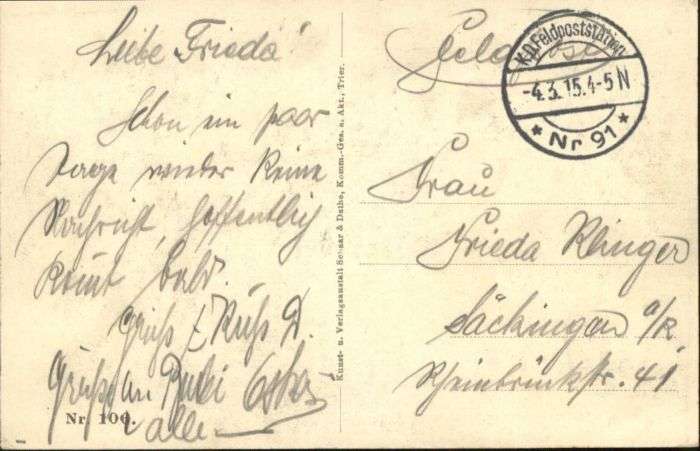 Liebe Frieda!
Schon ein paar
Tage wieder keine
Nachricht, hoffentlich
komt bald.
Gruß & Kuß D.
Grüße an
alle
Nr. 100.
Kunst- u. Verlagsanstalt Schaar & Dathe, Komm.-Ges. a. Akt., Trier.
Feldpost
K.D. Feldpoststation
-4.3.15.4-5N
* Nr 91 *
Frau
Frieda Klinger
Säckingen a/R.
Rheinbrückstr. 41